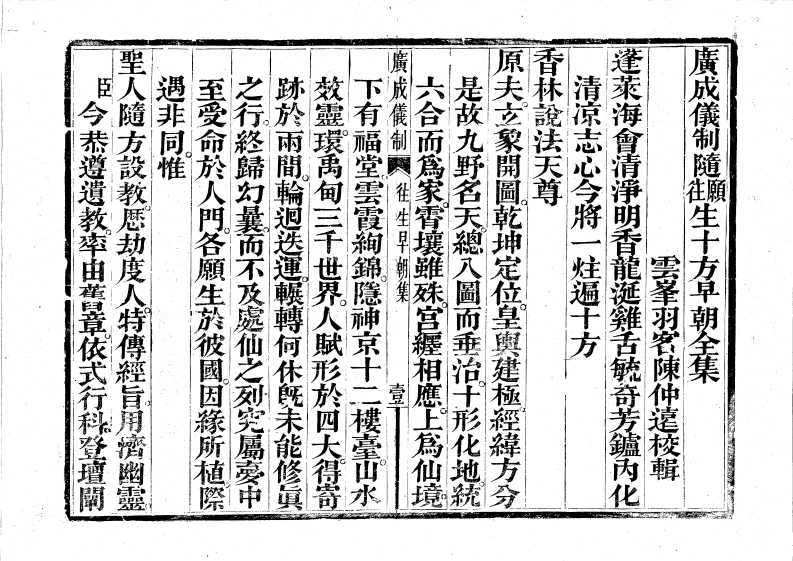 廣成儀制隨願往生十方早朝全集
雲峯羽客陳仲遠校輯
蓬萊海會清淨明香龍涎雞舌毓奇芳鑪內化
清凉志心今將一炷遍十方
香林說法天尊
原夫。玄象開圖。乾坤定位。皇輿建極。經緯方分
是故九野名天。總八圖而垂治。十形化地。統
六合而爲家。霄壤雖殊。宮纒相應。上爲仙境。
廣成儀制 往生早朝集 壹
下有福堂。雲霞絢錦。隱神京十二樓臺。山水
效靈。環禹甸三千世界。人賦形於四大。得寄
跡於兩間。輪迴迭運。輾轉何休。旣未能修眞
之行。終歸幻曩。而不及處仙之列。究屬夢中
至受命於人門。各願生於彼國。因緣所植。際
遇非同。惟
聖人隨方設教。歷劫度人。特傳經旨。用濟幽靈
臣今恭遵遺教。率由舊章。依式行科。登壇闡